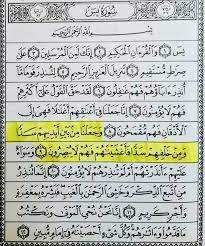 سُورَةُ يسٓ
بِسْمِ ٱللَّهِ ٱلرَّحْمَٰنِ ٱلرَّحِيمِ
يسٓ ١ وَٱلْقُرْءَانِ ٱلْحَكِيمِ ٢ إِنَّكَ لَمِنَ ٱلْمُرْسَلِينَ ٣ عَلَىٰ
صِرَٰطٍ مُّسْتَقِيمٍ ٤ تَنزِيلَ ٱلْعَزِيزِ ٱلرَّحِيمِ ٥ لِتُنذِرَ قَوْمًا مَّآ
أُنذِرَ ءَابَآؤُهُمْ فَهُمْ غَٰفِلُونَ ٦ لَقَدْ حَقَّ ٱلْقَوْلُ عَلَىٰٓ أَكْثَرِهِمْ
فَهُمْ لَا يُؤْمِنُونَ ٧ إِنَّا جَعَلْنَا فِىٓ أَعْنَٰقِهِمْ أَغْلَٰلًا فَهِىَ إِلَى
ٱلْأَذْقَانِ فَهُم مُّقْمَحُونَ ٨ وَجَعَلْنَا مِنۢ بَيْنِ أَيْدِيهِمْ سَدًّا
وَمِنْ خَلْفِهِمْ سَدًّا فَأَغْشَيْنَٰهُمْ فَهُمْ لَا يُبْصِرُونَ ٩ وَسَوَآءٌ
عَلَيْهِمْ ءَأَنذَرْتَهُمْ أَمْ لَمْ تُنذِرْهُمْ لَا يُؤْمِنُونَ ١٠ إِنَّمَا تُنذِرُ
مَنِ ٱتَّبَعَ ٱلذِّكْرَ وَخَشِىَ ٱلرَّحْمَٰنَ بِٱلْغَيْبِ فَبَشِّرْهُ بِمَغْفِرَةٍ
وَأَجْرٍ كَرِيمٍ ١١ إِنَّا نَحْنُ نُحْىِ ٱلْمَوْتَىٰ وَنَكْتُبُ
مَا قَدَّمُوا۟ وَءَاثَٰرَهُمْ وَكُلَّ شَىْءٍ أَحْصَيْنَٰهُ فِىٓ إِمَامٍ مُّبِينٍ